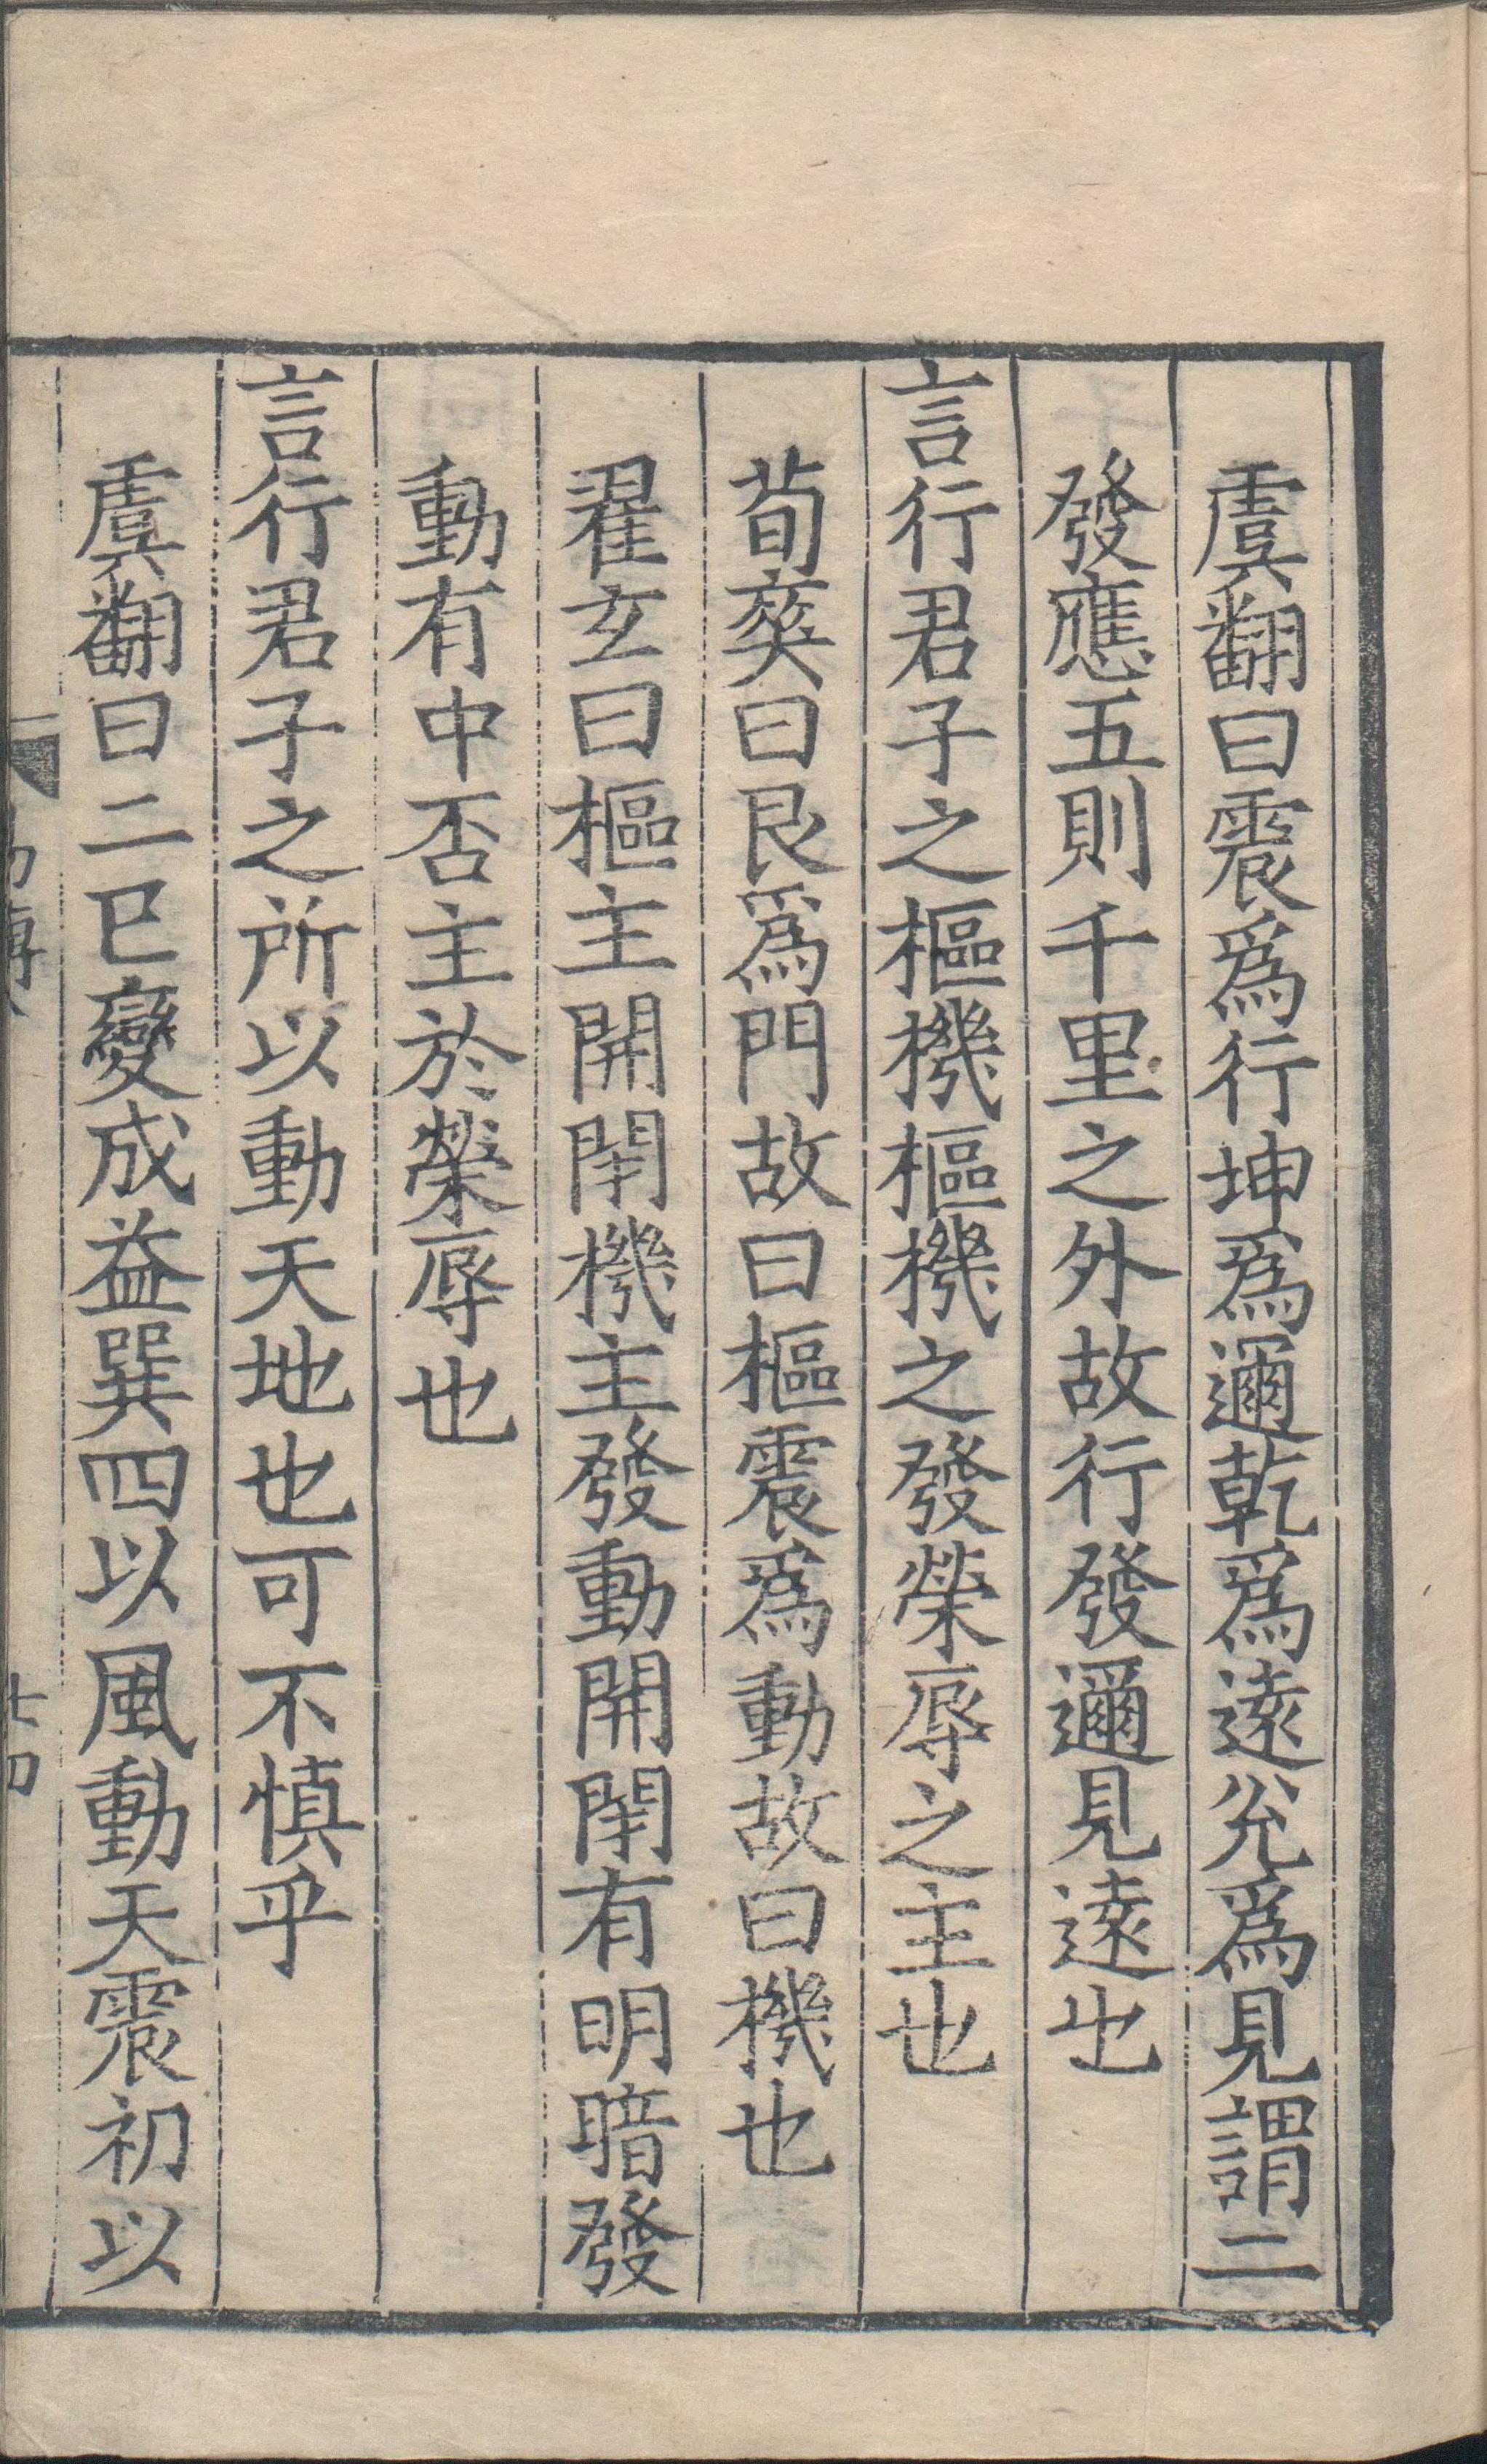 虞翻曰震爲行坤爲邇乾爲遠兊爲見謂二
發應五則千里之外故行發邇見遠也
言行君子之樞機樞機之發榮辱之主也
荀爽曰艮爲門故曰樞震爲動故曰機也
翟玄曰樞主開閉機主發動開閉有明暗發
動有中否主於榮辱也
言行君子之所以動天地也可不慎乎
虞翻曰二巳變成益巽四以風動天震初以